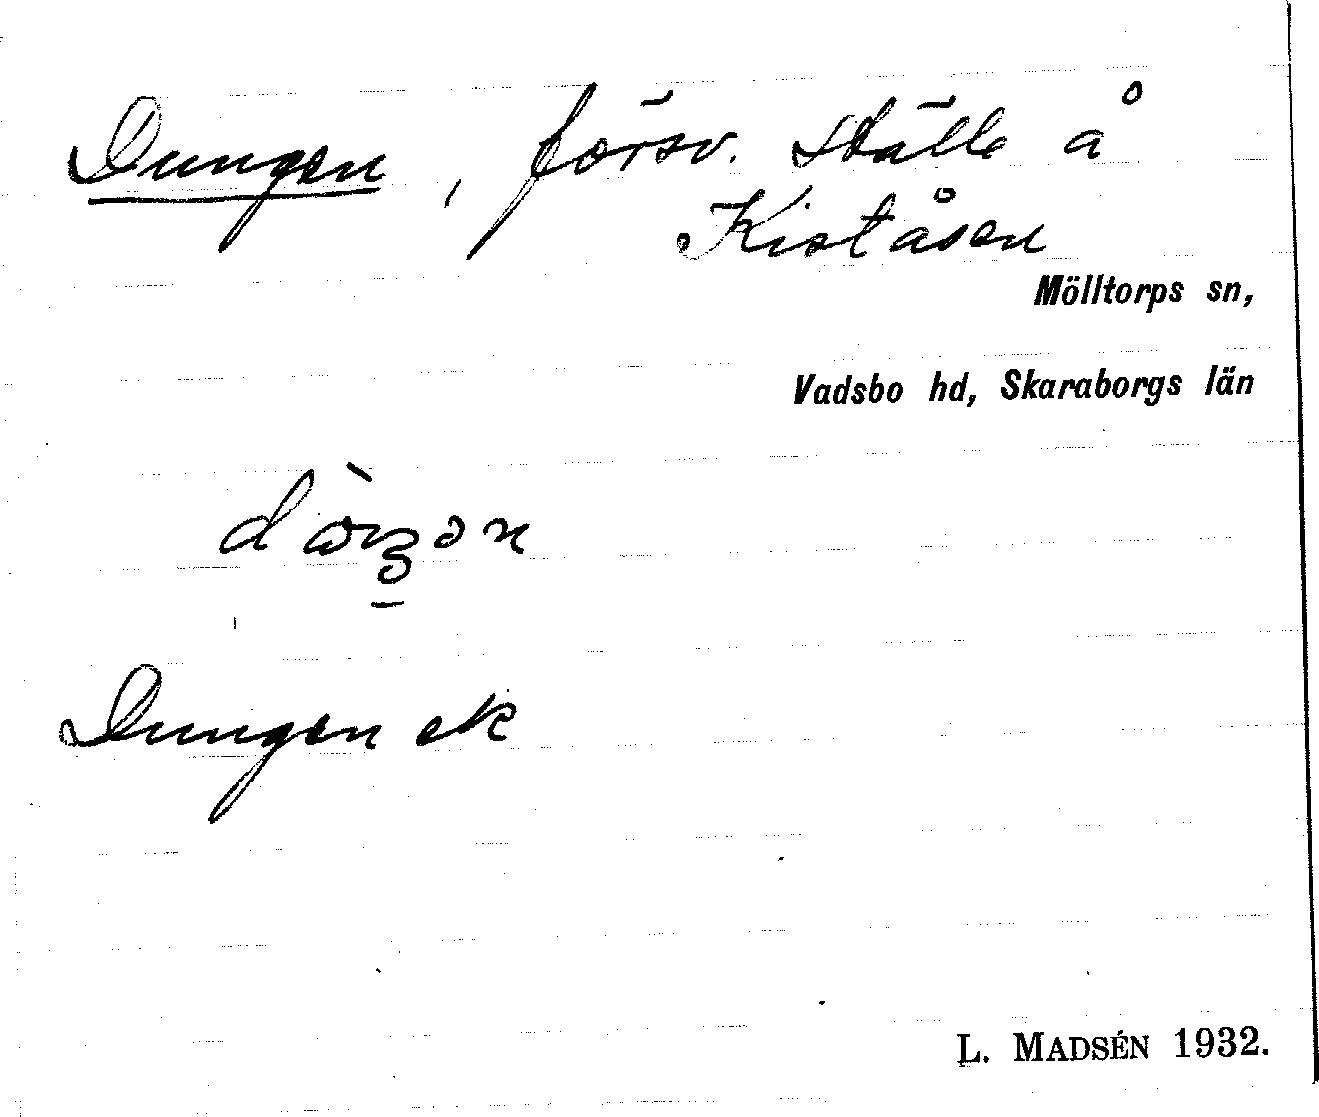 Dungen, försv. ställe å
Kiståsen
Mölltorps sn,
Vadsbo hd, Skaraborgs län
Dungen ek
L. MADSÉN 1932.